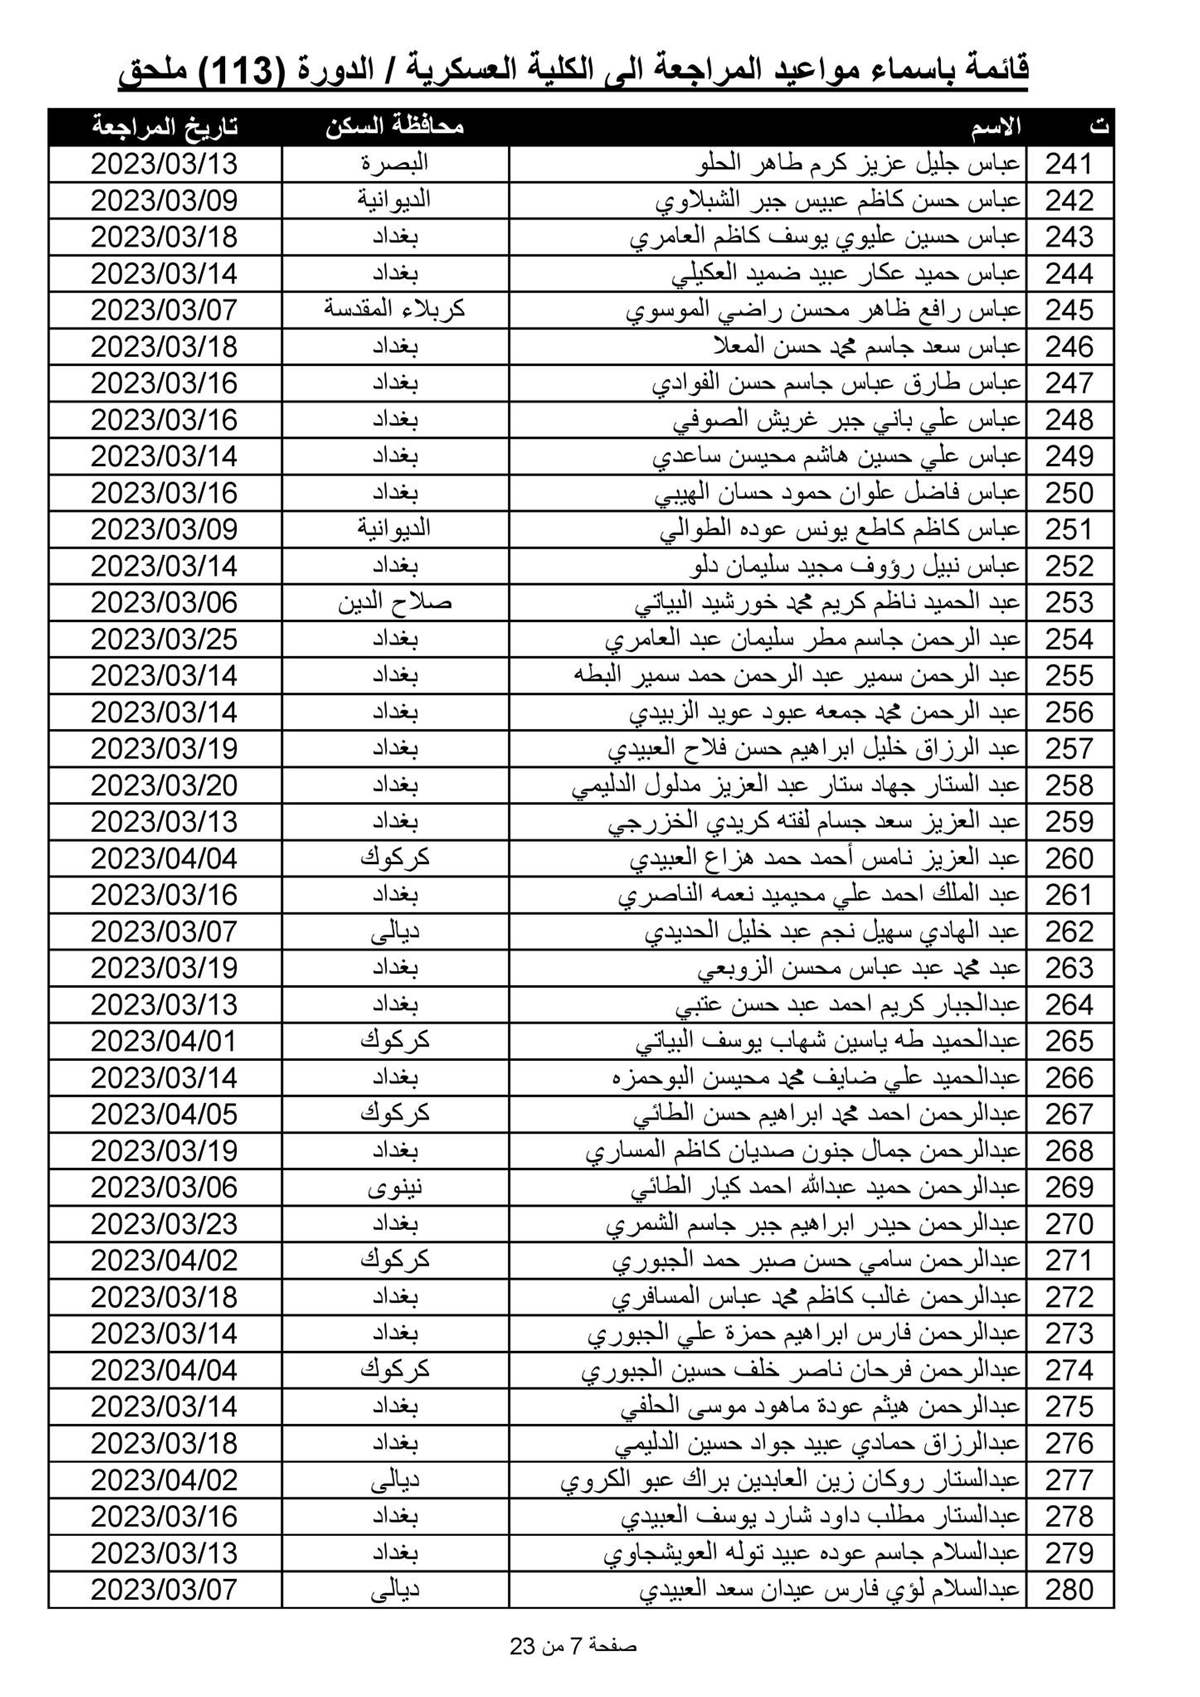 قائمة باسماء مواعيد المراجعة الى الكلية العسكرية / الدورة (113) ملحق
ت الاسم محافظة السكن تاريخ المراجعة
241 عباس جليل عزيز كرم طاهر الحلو البصرة 2023/03/13
242 عباس حسن كاظم عبيس جبر الشبلاوي الديوانية 2023/03/09
243 عباس حسين عليوي يوسف كاظم العامري بغداد 2023/03/18
244 عباس حميد عكار عبيد ضميد العكيلي بغداد 2023/03/14
245 عباس رافع ظاهر محسن راضي الموسوي كربلاء المقدسة 2023/03/07
246 عباس سعد جاسم محمد حسن المعلا بغداد 2023/03/18
247 عباس طارق عباس جاسم حسن الفوادي بغداد 2023/03/16
248 عباس علي باني جبر غريش الصوفي بغداد 2023/03/16
249 عباس علي حسين هاشم محيسن ساعدي بغداد 2023/03/14
250 عباس فاضل علوان حمود حسان الهيبي بغداد 2023/03/16
251 عباس كاظم كاطع يونس عوده الطوالي الديوانية 2023/03/09
252 عباس نبيل رؤوف مجيد سليمان دلو بغداد 2023/03/14
253 عبد الحميد ناظم كريم محمد خورشيد البياتي صلاح الدين 2023/03/06
254 عبد الرحمن جاسم مطر سليمان عبد العامري بغداد 2023/03/25
255 عبد الرحمن سمير عبد الرحمن حمد سمير البطه بغداد 2023/03/14
256 عبد الرحمن محمد جمعه عبود عويد الزبيدي بغداد 2023/03/14
257 عبد الرزاق خليل ابراهيم حسن فلاح العبيدي بغداد 2023/03/19
258 عبد الستار جهاد ستار عبد العزيز مدلول الدليمي بغداد 2023/03/20
259 عبد العزيز سعد جسام لفته كريدي الخزرجي بغداد 2023/03/13
260 عبد العزيز نامس أحمد حمد هزاع العبيدي كركوك 2023/04/04
261 عبد الملك احمد علي محيميد نعمه الناصري بغداد 2023/03/16
262 عبد الهادي سهيل نجم عبد خليل الحديدي ديالى 2023/03/07
263 عبد محمد عبد عباس محسن الزوبعي بغداد 2023/03/19
264 عبدالجبار كريم احمد عبد حسن عتبي بغداد 2023/03/13
265 عبدالحميد طه ياسين شهاب يوسف البياتي كركوك 2023/04/01
266 عبدالحميد علي ضايف محمد محيسن البوحمزه بغداد 2023/03/14
267 عبدالرحمن احمد محمد ابراهيم حسن الطائي كركوك 2023/04/05
268 عبدالرحمن جمال جنون صديان كاظم المساري بغداد 2023/03/19
269 عبدالرحمن حميد عبدالله احمد كيار الطائي نينوى 2023/03/06
270 عبدالرحمن حيدر ابراهيم جبر جاسم الشمري بغداد 2023/03/23
271 عبدالرحمن سامي حسن صبر حمد الجبوري كركوك 2023/04/02
272 عبدالرحمن غالب كاظم محمد عباس المسافري بغداد 2023/03/18
273 عبدالرحمن فارس ابراهيم حمزة علي الجبوري بغداد 2023/03/14
274 عبدالرحمن فرحان ناصر خلف حسين الجبوري كركوك 2023/04/04
275 عبدالرحمن هيثم عودة ماهود موسى الحلفي بغداد 2023/03/14
276 عبدالرزاق حمادي عبيد جواد حسين الدليمي بغداد 2023/03/18
277 عبدالستار روكان زين العابدين براك عبو الكروي ديالى 2023/04/02
278 عبدالستار مطلب داود شارد يوسف العبيدي بغداد 2023/03/16
279 عبدالسلام جاسم عوده عبيد توله العويشجاوي بغداد 2023/03/13
280 عبدالسلام لؤي فارس عيدان سعد العبيدي ديالى 2023/03/07
صفحة 7 من 23